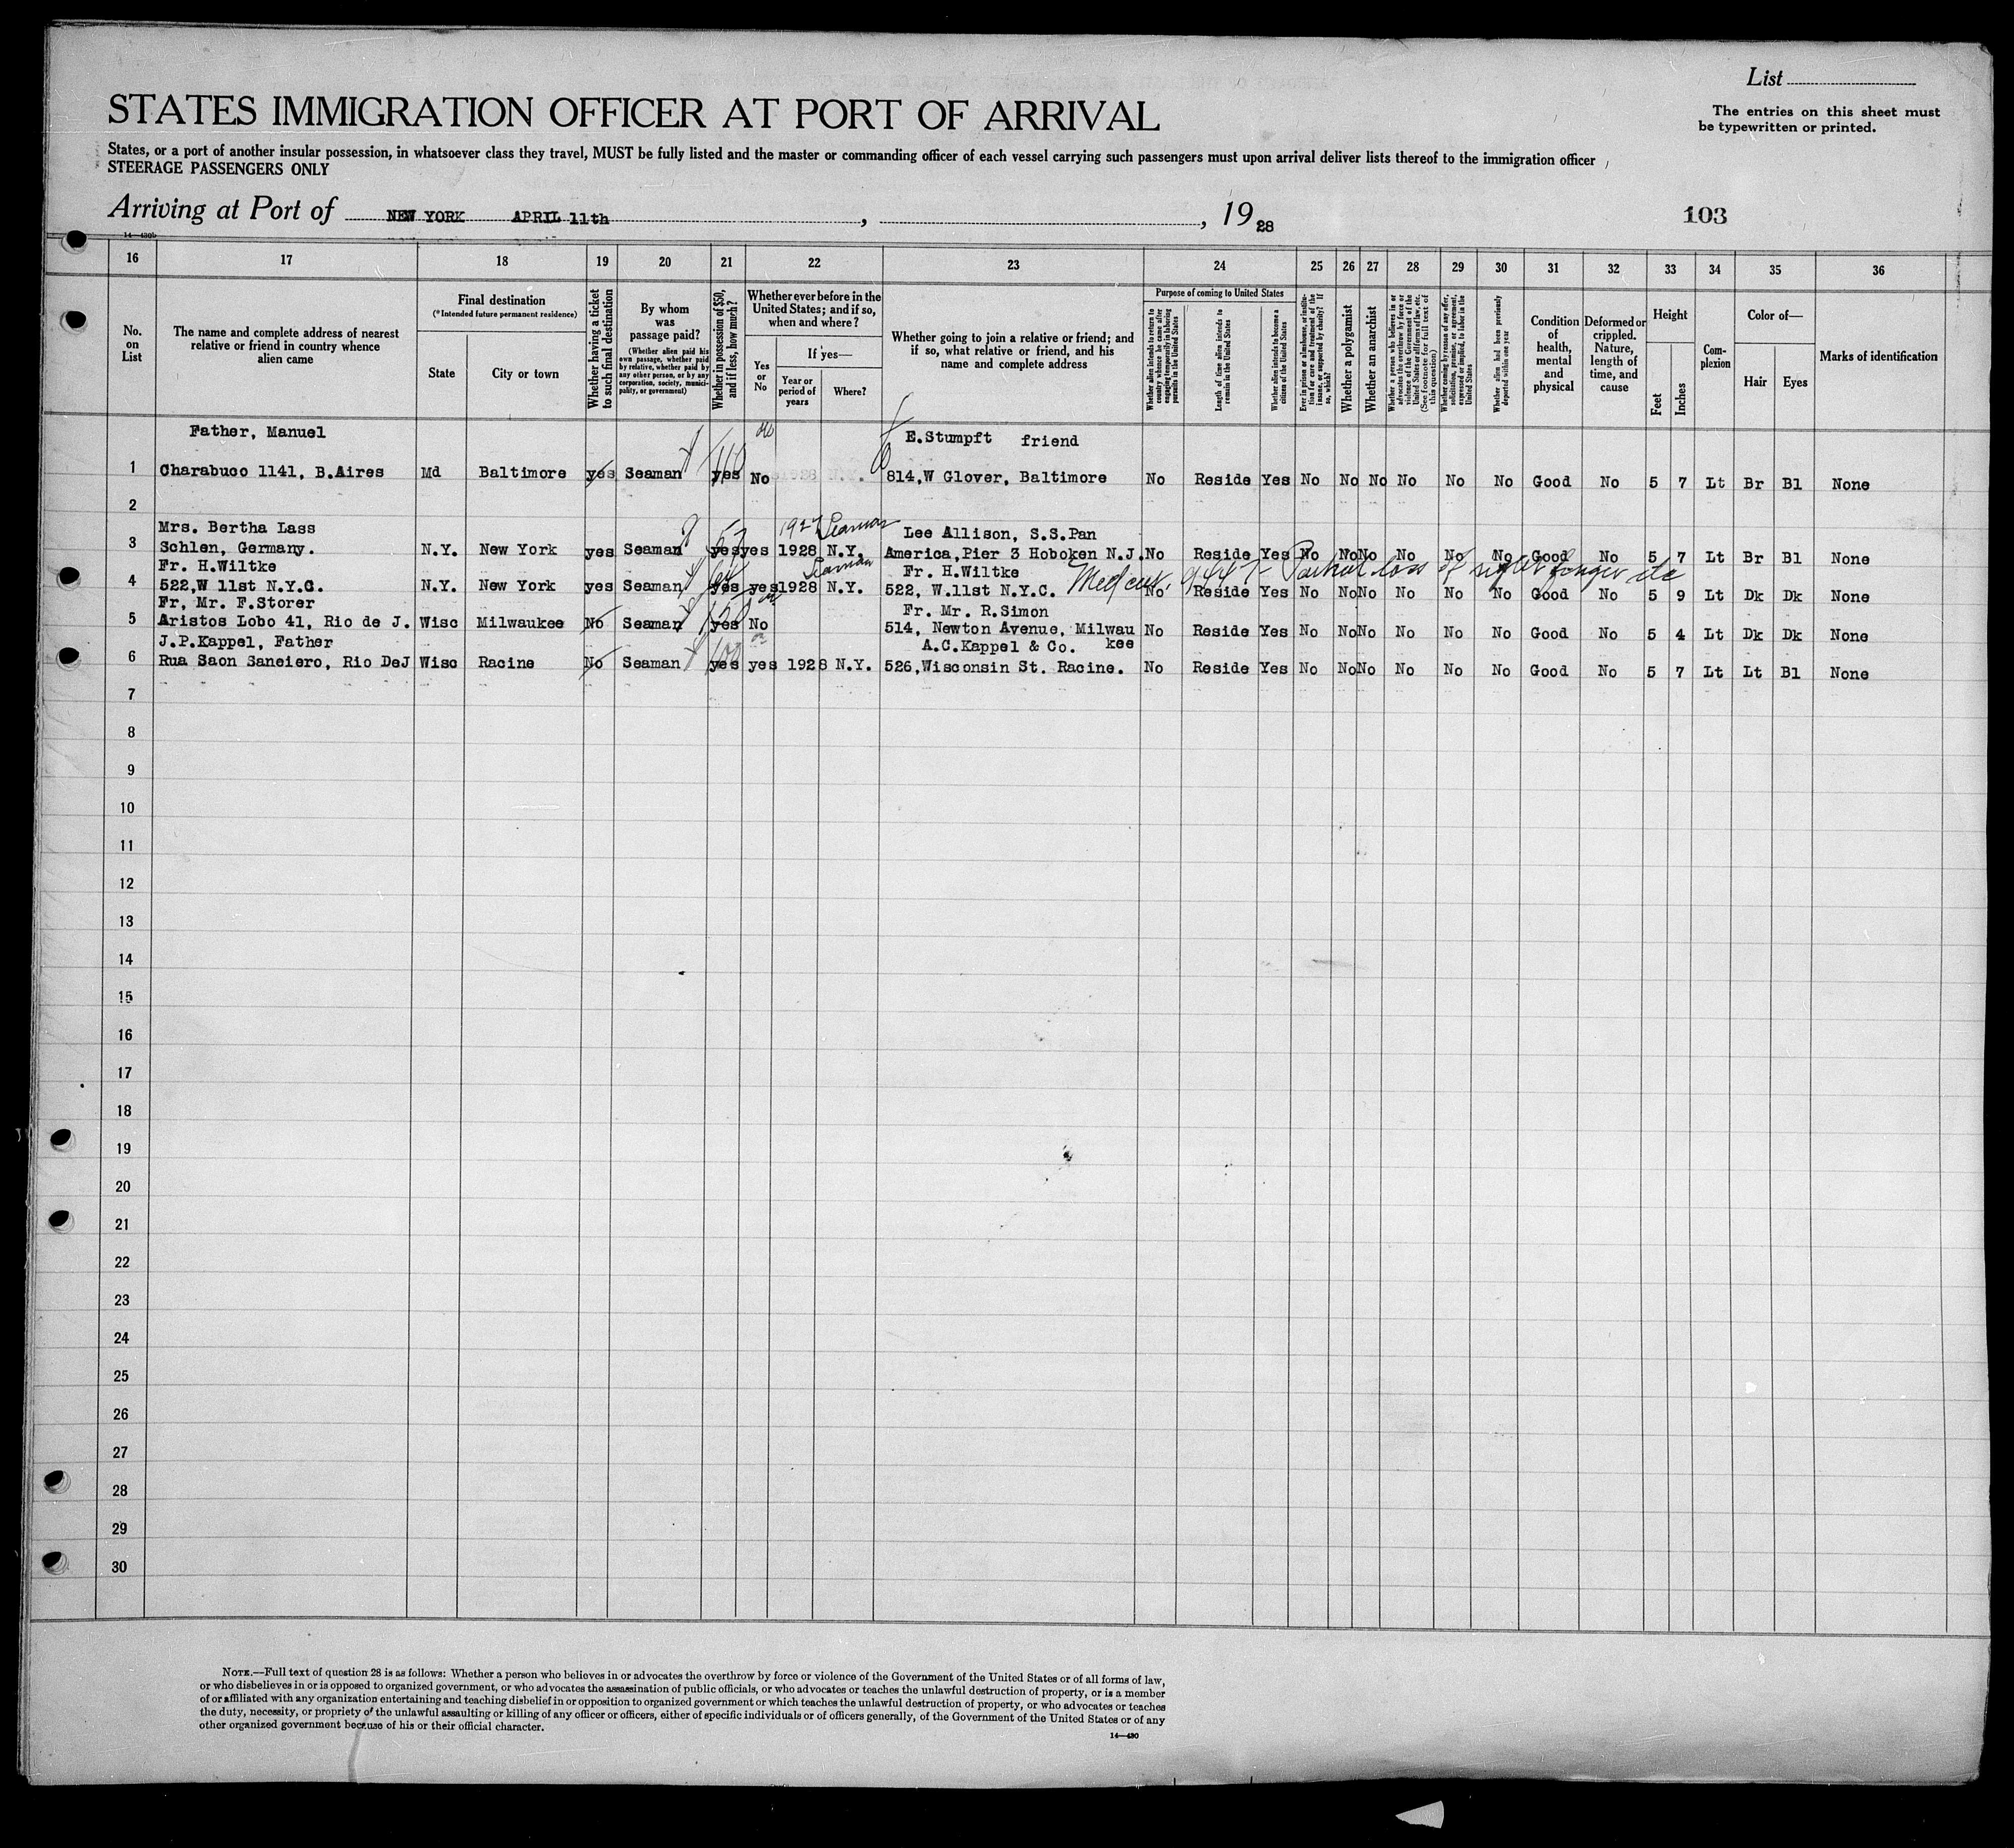 List
STATES IMMIGRATION OFFICER AT PORT OF ARRIVAL
The entries on this sheet must
be typewritten or printed.
States, or a port of another insular possession, in whatsoever class they travel, MUST be fully listed and the master or commanding officer of each vessel carrying such passengers must upon arrival deliver lists thereof to the immigration officer
STEERAGE PASSENGERS ONLY
Arriving at Port of NEW YORK APRIL 11th , , 19 28
103
14—430b
16 17 18 19 20 21 22 23 24 25 26 27 28 29 30 31 32 33 34 35 36
No. on List
The name and complete address of nearest relative or friend in country whence alien came
Final destination
(*Intended future permanent residence)
State
City or town
Whether having a ticket to such final destination
By whom was passage paid?
(Whether alien paid his own passage, whether paid by relative, whether paid by any other person, or by any corporation, society, municipality, or government)
Whether in possession of $50, and if less, how much?
Whether ever before in the United States; and if so, when and where?
Yes or No
If yes—
Year or period of years
Where?
Whether going to join a relative or friend; and if so, what relative or friend, and his name and complete address
Purpose of coming to United States
Whether alien intends to return to country whence he came after engaging temporarily in laboring pursuits in the United States
Length of time alien intends to remain in the United States
Whether alien intends to become a citizen of the United States
Ever in prison or almshouse, or institution for care and treatment of the insane, or supported by charity? If so, which?
Whether a polygamist
Whether an anarchist
Whether a person who believes in or advocates the overthrow by force or violence of the Government of the United States or all forms of law, etc. (See footnote for full text of this question)
Whether coming by reason of any offer, solicitation, promise, or agreement, expressed or implied, to labor in the United States
Whether alien had been previously deported within one year
Condition of health, mental and physical
Deformed or crippled. Nature, length of time, and cause
Height
Feet
Inches
Complexion
Color of—
Hair
Eyes
Marks of identification
Father, Manuel E.Stumpft friend
1 Charabuco 1141, B.Aires Md Baltimore yes Seaman yes 110 No 814,W Glover, Baltimore No Reside Yes No No No No No No Good No 5 7 Lt Br Bl None
2
Mrs. Bertha Lass 1927 Seaman Lee Allison, S.S.Pan
3 Schlen, Germany. N.Y. New York yes Seaman yes yes 1928 N.Y. America,Pier 3 Hoboken N.J. No Reside Yes No No No No No No Good No 5 7 Lt Br Bl None
Fr. H.Wiltke Seaman Fr. H.Wiltke Med cert. Partial loss of right finger etc
4 522,W 11st N.Y.C. N.Y. New York yes Seaman yes yes 1928 N.Y. 522, W.11st N.Y.C. No Reside Yes No No No No No No Good No 5 9 Lt Dk Dk None
Fr, Mr. F.Storer Fr. Mr. R.Simon
5 Aristos Lobo 41, Rio de J. Wisc Milwaukee No Seaman yes 150 No 514, Newton Avenue, Milwau No Reside Yes No No No No No No Good No 5 4 Lt Dk Dk None
J.P.Kappel, Father A.C.Kappel & Co. kee
6 Rua Saon Saneiero, Rio DeJ Wisc Racine No Seaman yes 100 yes 1928 N.Y. 526,Wisconsin St. Racine. No Reside Yes No No No No No No Good No 5 7 Lt Lt Bl None
7
8
9
10
11
12
13
14
15
16
17
18
19
20
21
22
23
24
25
26
27
28
29
30
NOTE.—Full text of question 28 is as follows: Whether a person who believes in or advocates the overthrow by force or violence of the Government of the United States or of all forms of law,
or who disbelieves in or is opposed to organized government, or who advocates the assassination of public officials, or who advocates or teaches the unlawful destruction of property, or is a member
of or affiliated with any organization entertaining and teaching disbelief in or opposition to organized government or which teaches the unlawful destruction of property, or who advocates or teaches
the duty, necessity, or propriety of the unlawful assaulting or killing of any officer or officers, either of specific individuals or of officers generally, of the Government of the United States or of any
other organized government because of his or their official character.
14—430